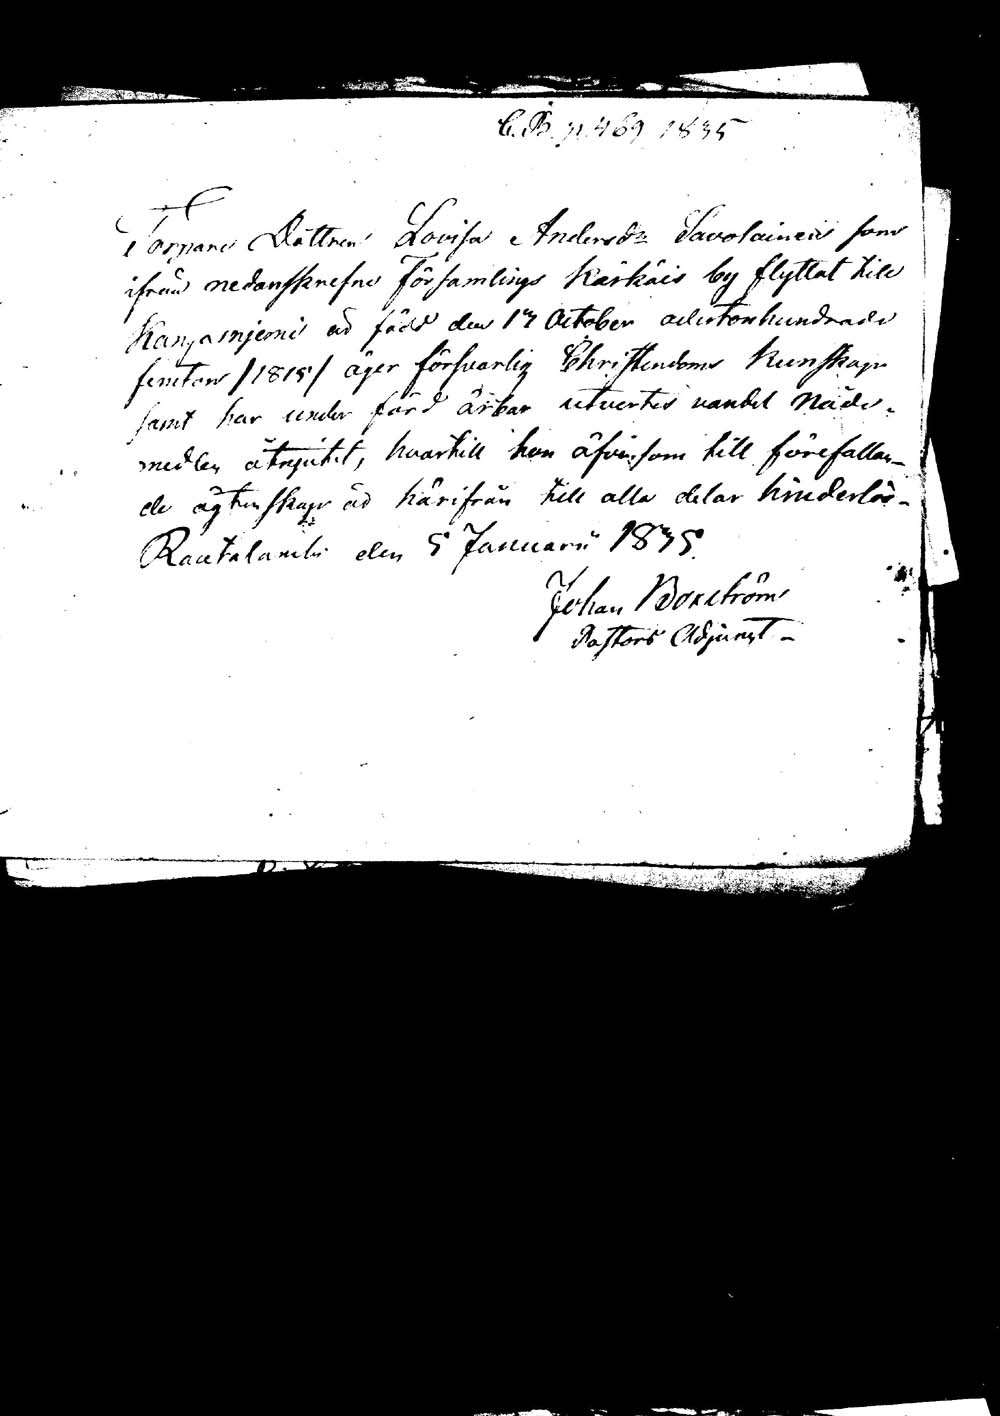 C. B. p. 469 1835
Torpare Dottren Lovisa Andersdr Savolainen som
ifrån nedanskrefne Församlings Kärkäis by flyttat till
Kangasnjemi är född den 17 October adertonhundrade
femton /1815/ äger försvarlig Christendoms Kunskap
samt har under förd ärbar utvertes vandel Nåde-
medlen åtnjutit, hvartill hon äfvensom till förefallan-
de ägtenskap är härifrån till alla delar hinderlös-
Rautalambi den 5 Januarii 1835.
Johan Boxström
Pastors Adjunct -